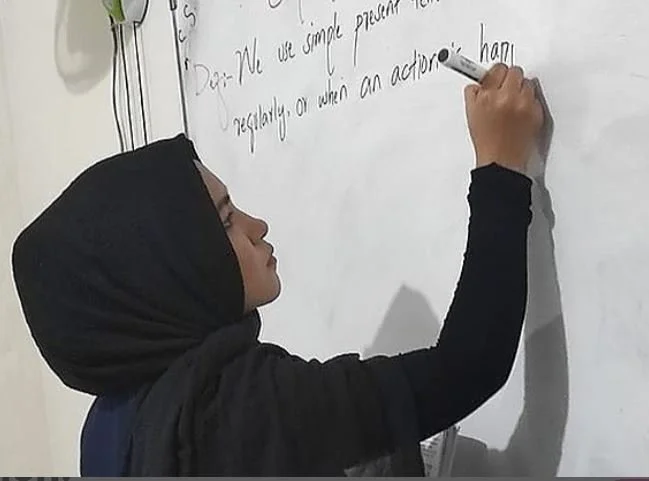 Def:- We use simple present
regularly. or when an action is hap